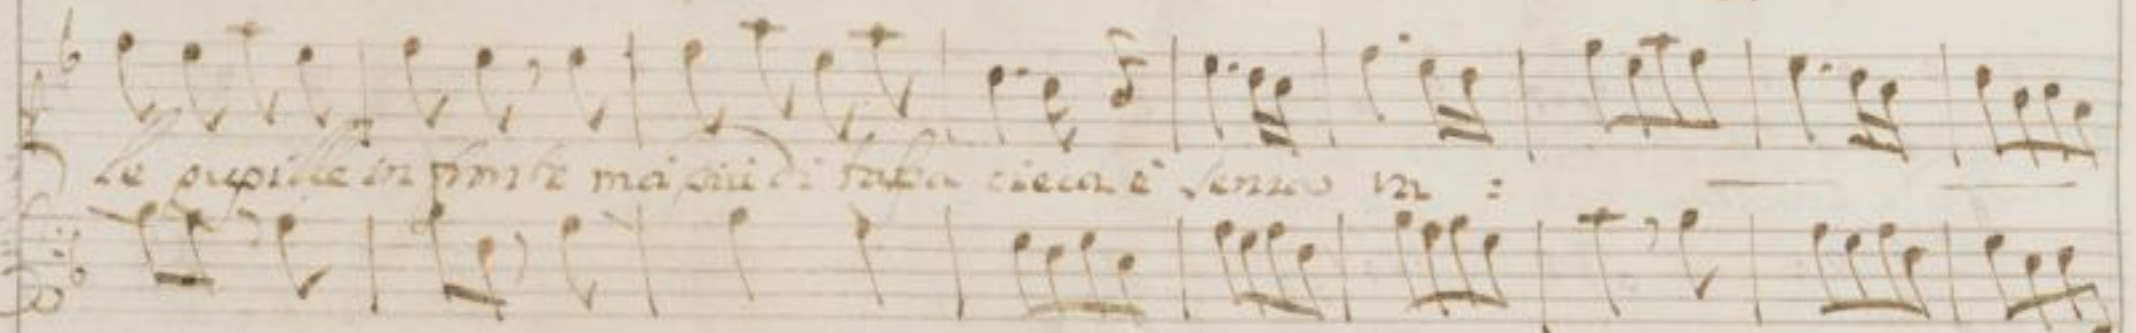 le pupille in finite ma più di talpa cieca è senza un :